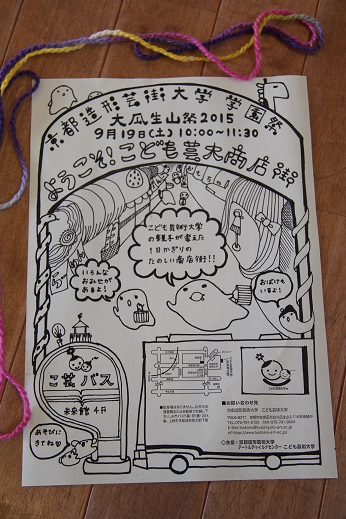 京都造形芸術大学学園祭
大瓜生山祭2015
9月19日(土) 10:00~11:30
ようこそ!こども芸大商店街
こども芸術大学
の親子が考えた
1日かぎりの
たのしい商店街!!
いろんな
おみせが
あるよ!
おばけも
いるよ!
こ芸 バス
未来館 4F
あそびに
きてね
■お問い合わせ先
京都造形芸術大学 こども芸術大学
■主催:京都造形芸術大学
アート&チャイルドセンター こども芸術大学